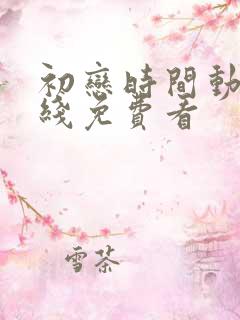 初戀時間動
綫免費看
雪茶